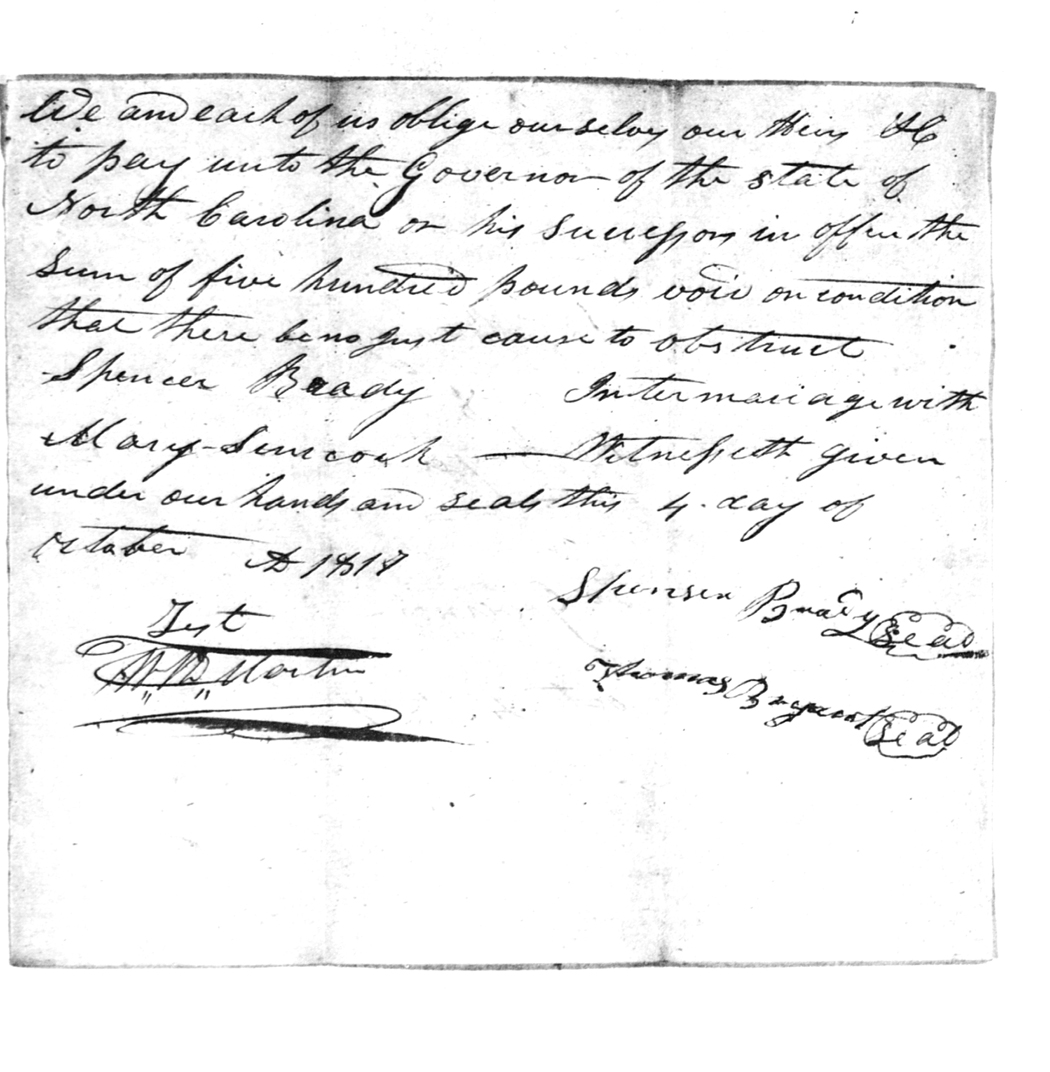 We and each of us oblige ourselves our Heirs &C
to pay unto the Governor of the state of
North Carolina or his Successors in office the
Sum of five hundred pounds void on condition
that there be no just cause to obstruct
Spencer Brady Intermariage with
Mary Simcock — Witnesseth given
under our hands and seals this 4. day of
October AD 1817
Test
Spensen Brady Seal
W. B. Martin
Thomas Bryant Seal